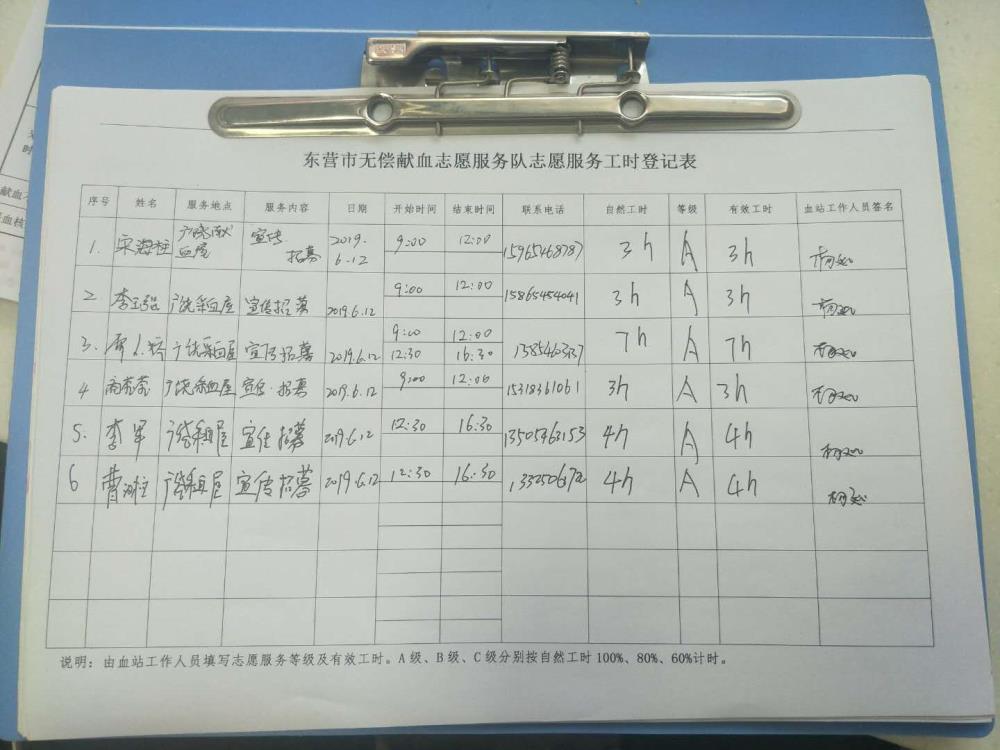 东营市无偿献血志愿服务队志愿服务工时登记表
序号 姓名 服务地点 服务内容 日期 开始时间 结束时间 联系电话 自然工时 等级 有效工时 血站工作人员签名
1. 宋海柱 广饶献血屋 宣传招募 2019.6.12 9:00 12:00 15965468787 3h A 3h
2 广饶采血屋 宣传招募 2019.6.12 9:00 12:00 15865454041 3h A 3h
3. 广饶采血屋 宣传招募 2019.6.12 9:00 12:00 7h A 7h
12:30 16:30
4 广饶采血屋 宣传·招募 2019.6.12 9:00 12:00 15318361061 3h A 3h
5. 李军 广饶采血屋 宣传招募 2019.6.12 12:30 16:30 13505463153 4h A 4h
6 广饶采血屋 宣传招募 2019.6.12 12:30 16:30 4h A 4h
说明：由血站工作人员填写志愿服务等级及有效工时。A级、B级、C级分别按自然工时100%、80%、60%计时。